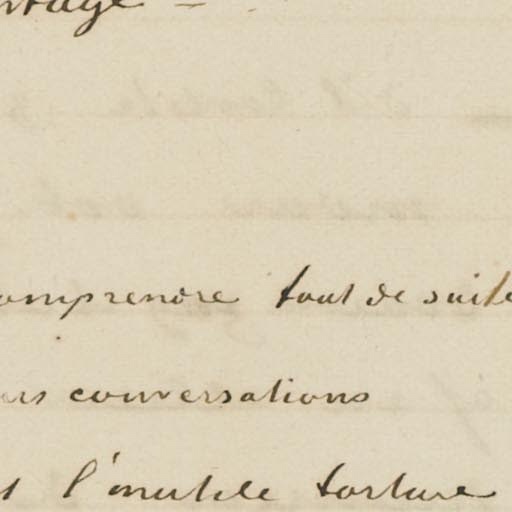 comprendre tout de suite
conversations
l'inutile torture